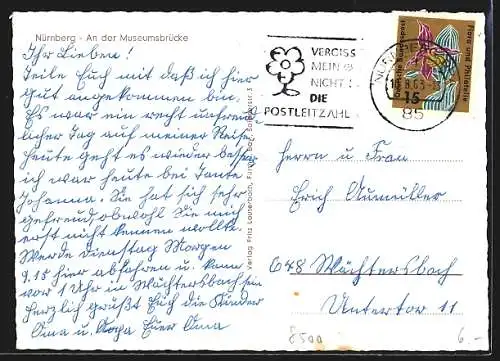 Nürnberg - An der Museumsbrücke
Ihr Lieben!
Teile Euch mit daß ich hier
gut angekommen bin.
Es war ein recht unfreund-
licher Tag auf meiner Reise
heute geht es wieder besser
ich war heute bei Tante
Johanna. Sie hat sich sehr
gefreut, obwohl Sie mich
erst nicht kennen wollte.
Werde Dienstag Morgen
9.15 hier abfahren u. kann
vor 1 Uhr in Wächtersbach sein
Herzlich grüßt Euch die Kinder
Oma u. Euer Oma
Verlag Fritz Lauterbach, Fürth/Bay.
VERGISS
MEIN
NICHT
DIE
POSTLEITZAHL
NÜRNBERG
8.63
85
Deutsche Bundespost
15
Flora und Philatelie
Herrn u. Frau
Erich Aumüller
648 Wächtersbach
Untertor 11
8500
6.-